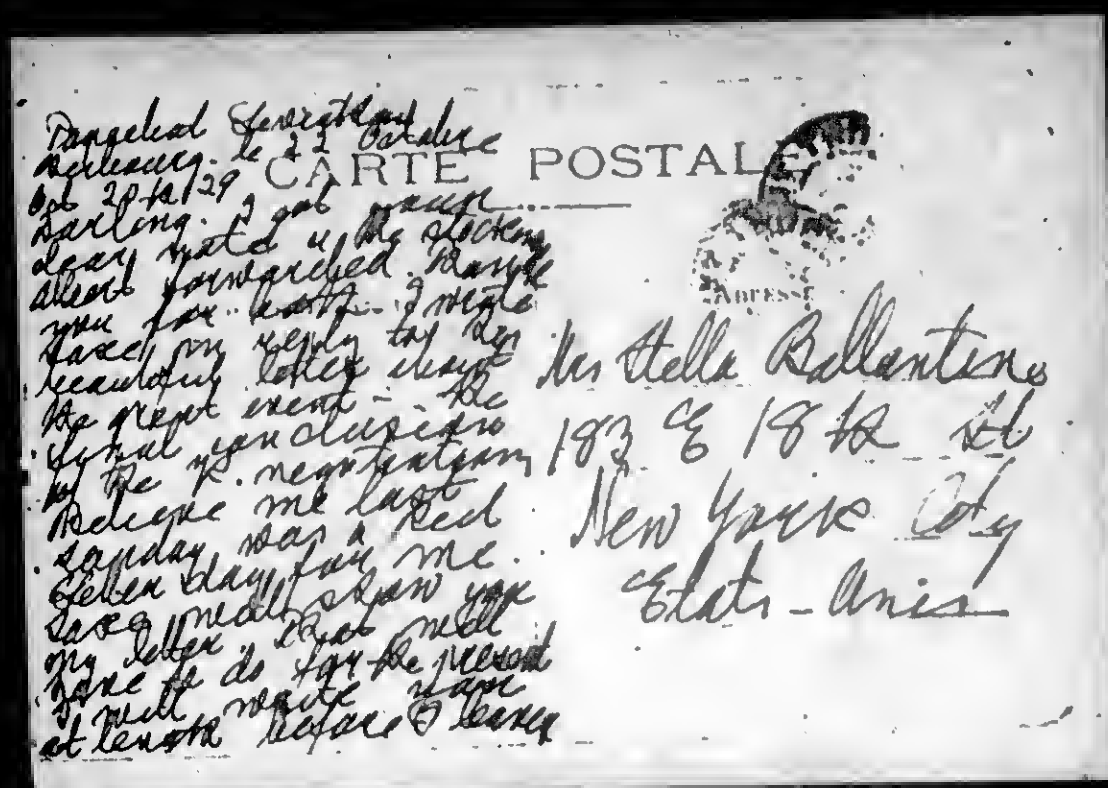 CARTE POSTALE
ADRESSE
le 22
Oct 20th/29
Darling. I got your
dear note & the stockings
forwarded. Thank
you for both. I wrote
Saxe in reply to his
beautiful letter
the great event – the
final conclusion
of the K. negotiations
Believe me last
Sunday was a red
letter day for me.
Saxe will show you
my letter. that will
have to do for the present
I will write you
at length before I leave
Mrs Stella Ballantine
183 E 18th St
New York City
Etats-Unis